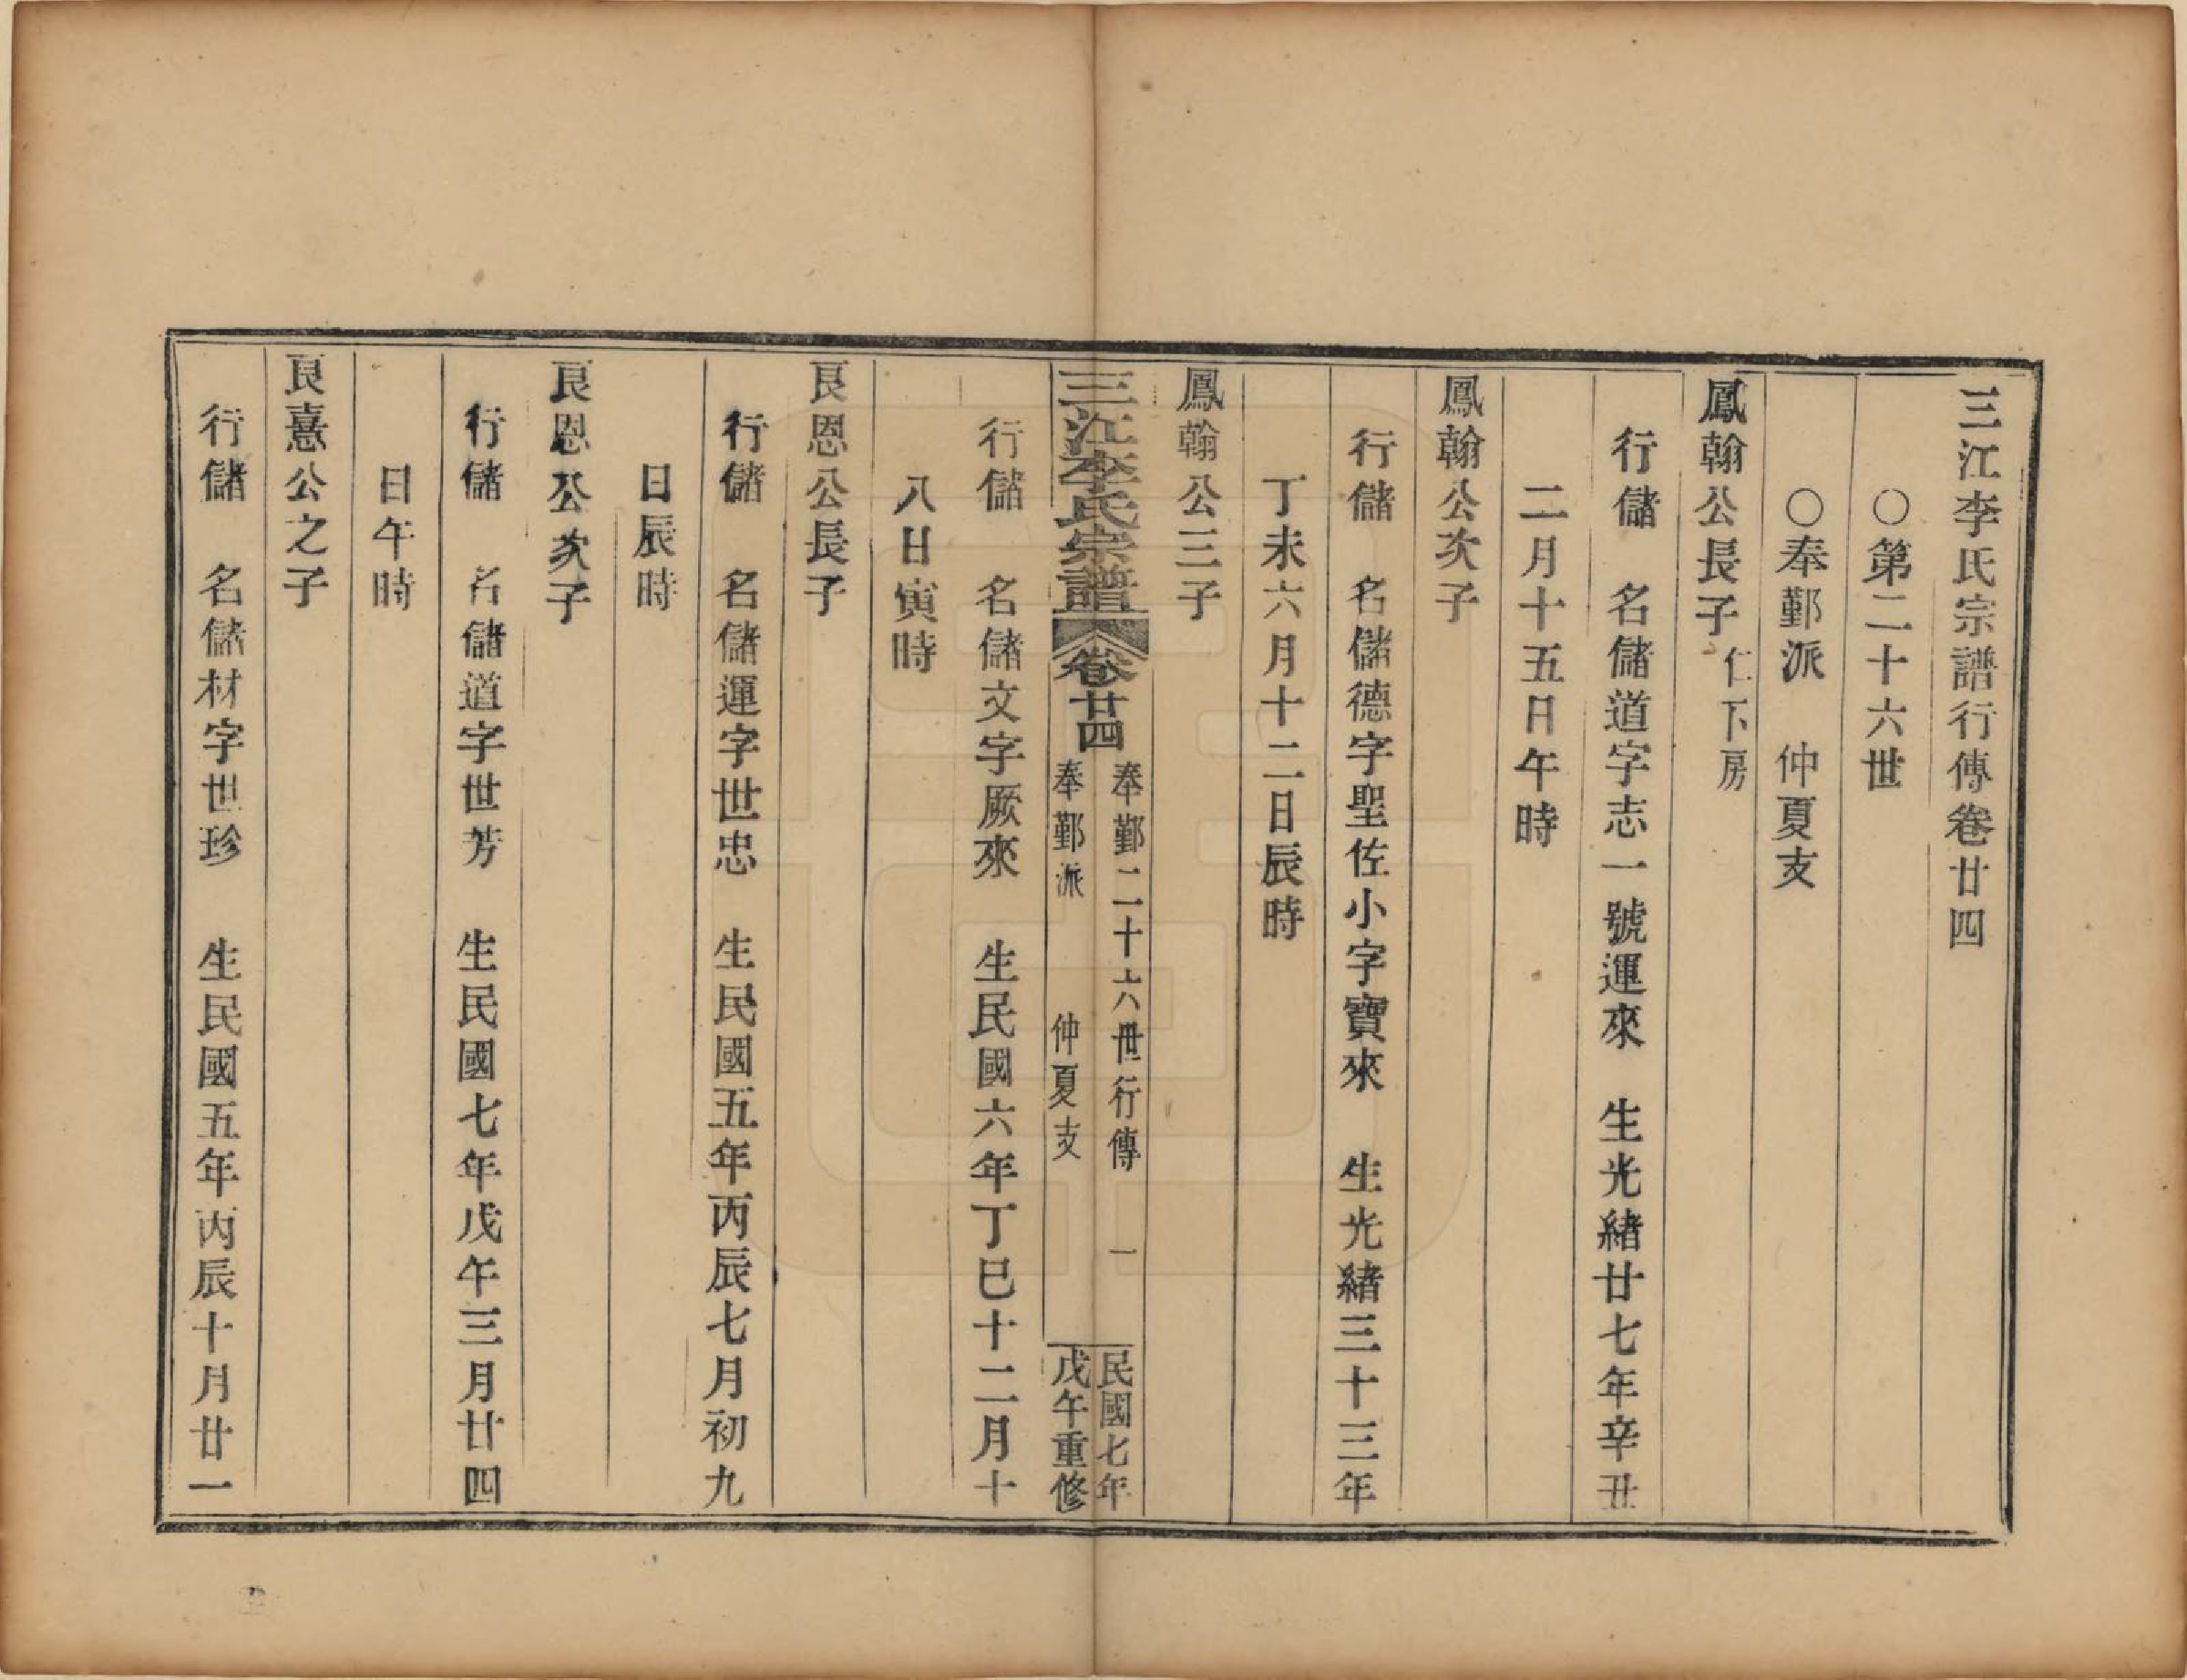 三江李氏宗譜行傳卷廿四
〇第二十六世
〇奉鄞派　仲夏支
鳳翰公長子　仁下房
行儲　名儲道字志一號運來　生光緒廿七年辛丑
二月十五日午時
鳳翰公次子
行儲　名儲德字聖佐小字寶來　生光緒三十三年
丁未六月十二日辰時
鳳翰公三子
三江李氏宗譜　卷廿四
奉鄞二十六世行傳　一
奉鄞派　仲夏支
民國七年
戊午重修
行儲　名儲文字厥來　生民國六年丁巳十二月十
八日寅時
良恩公長子
行儲　名儲運字世忠　生民國五年丙辰七月初九
日辰時
良恩公次子
行儲　名儲道字世芳　生民國七年戊午三月廿四
日午時
良憙公之子
行儲　名儲材字世珍　生民國五年丙辰十月廿一